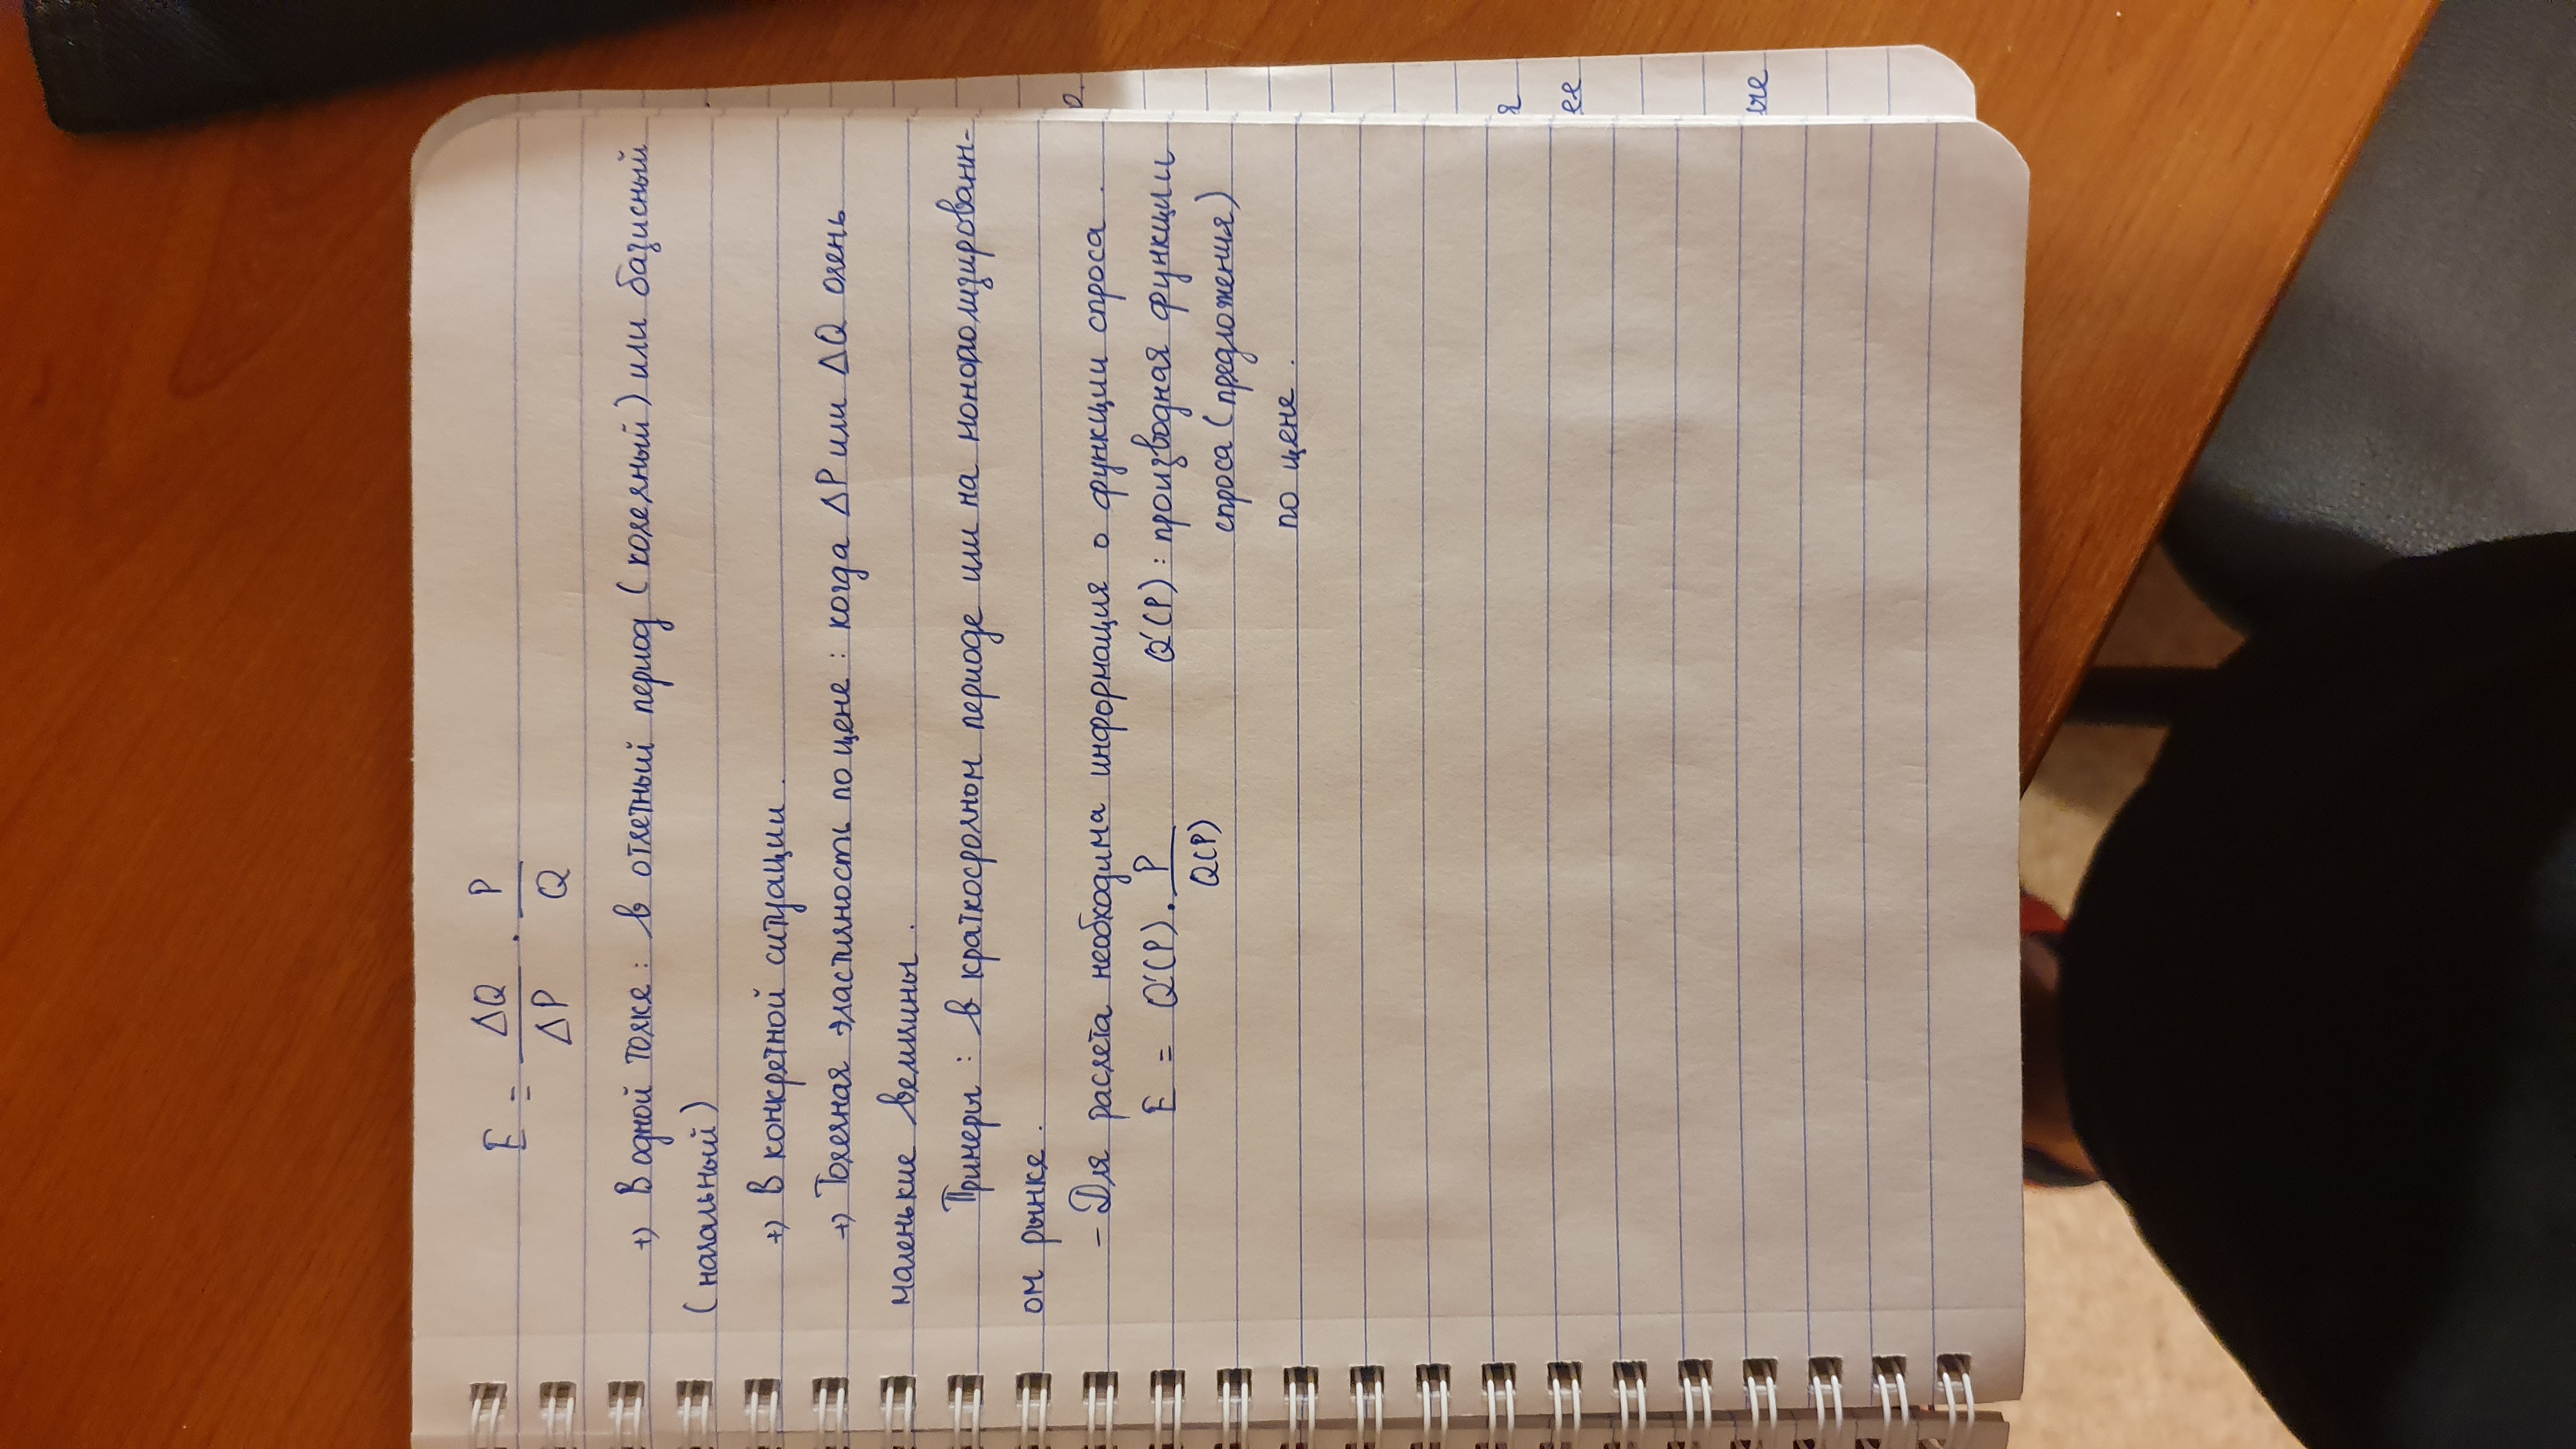 E = ΔQ/ΔP · P/Q
+) В одной точке: в отчетный период (конечный) или базисный
(начальный)
+) В конкретной ситуации.
+) Точечная эластичность по цене: когда ΔP или ΔQ очень
маленькие величины.
Примеры: в краткосрочном периоде или на монополизированн-
ом рынке.
– Для расчета необходима информация о функции спроса.
E = Q'(P) · P/Q(P) Q'(P): производная функции
спроса (предложения)
по цене.
ее